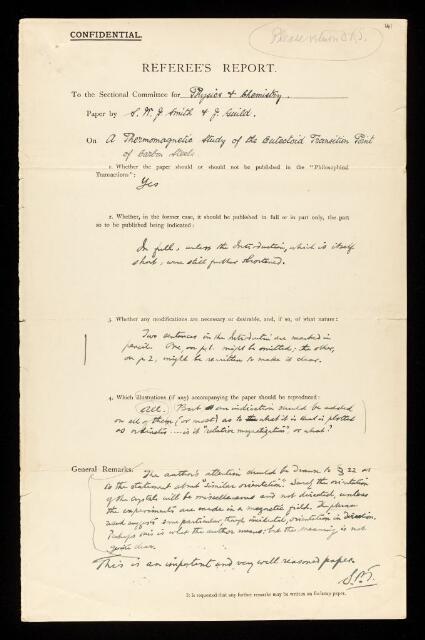 41
CONFIDENTIAL.
Please return S.P.T.
REFEREE'S REPORT.
To the Sectional Committee for Physics & Chemistry.
Paper by S. W. J. Smith & J. Guild.
On A Thermomagnetic Study of the Eutectoid Transition Point
of Carbon Steels
1. Whether the paper should or should not be published in the "Philosophical
Transactions":
Yes
2. Whether, in the former case, it should be published in full or in part only, the part
so to be published being indicated:
In full, unless the Introduction, which is itself
short, were still further shortened.
3. Whether any modifications are necessary or desirable, and, if so, of what nature:
Two sentences in the Introduction are marked in
pencil. One, on p1. might be omitted; the other,
on p2, might be rewritten to make it clear.
4. Which illustrations (if any) accompanying the paper should be reproduced:
All. But an indication should be added
on all of them (or most) as to what it is that is plotted
as ordinates .... is it "relative magnetization", or what?
General Remarks.
The author's attention should be drawn to § 22 as
to the statement about "similar orientation". Surely the orientation
of the crystals will be miscellaneous and not directed, unless
the experiments are made in a magnetic field. The phrase
used suggests some particular, though undirected, orientation in direction.
Perhaps this is what the author means; but the meaning is not
quite clear.
This is an important and very well reasoned paper.
S.P.T.
It is requested that any further remarks may be written on foolscap paper.